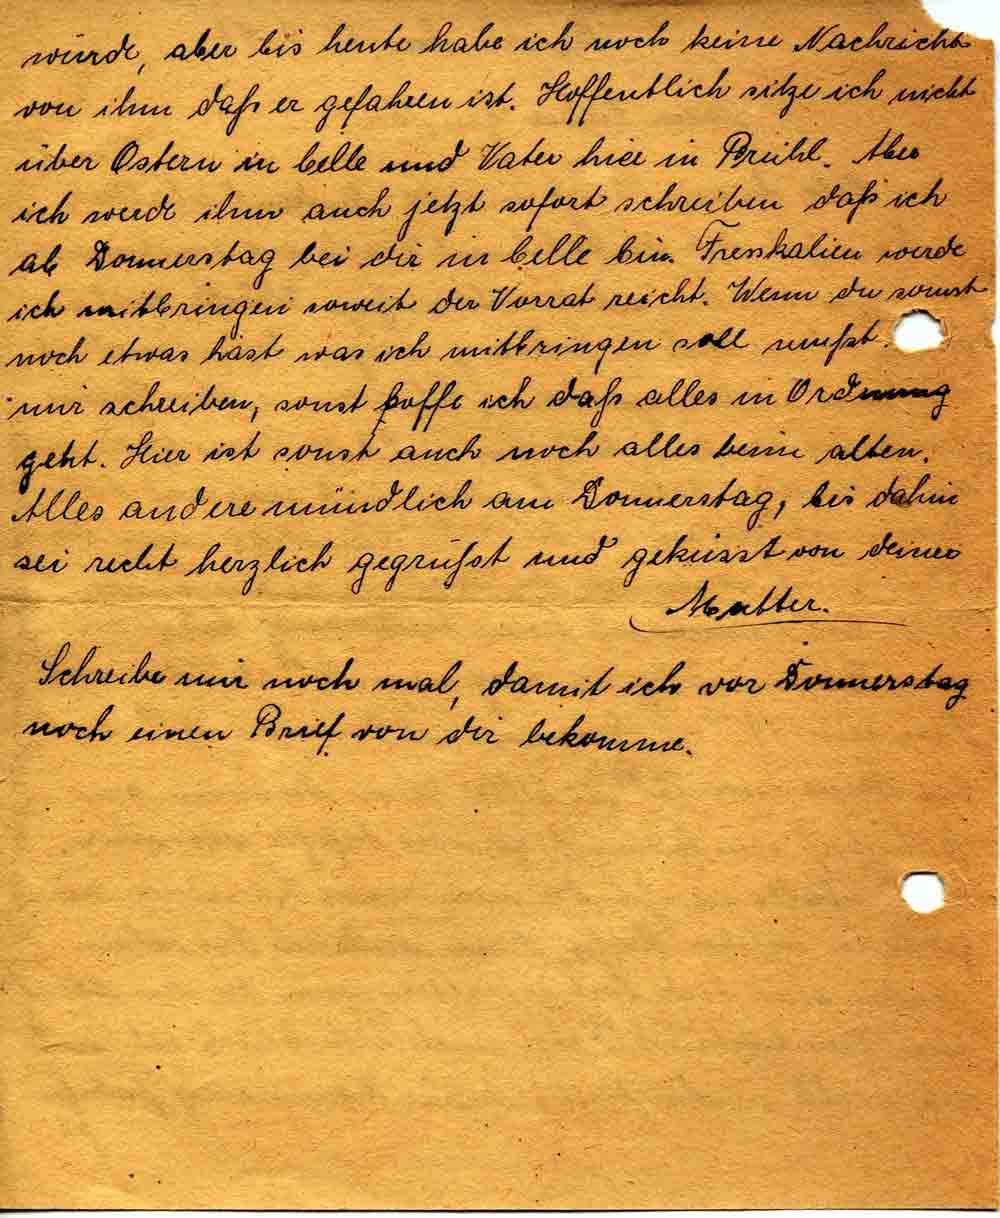 würde, aber bis heute habe ich noch keine Nachricht
von ihm daß er gefahren ist. Hoffentlich sitze ich nicht
über Ostern in Celle und Vater hier in Brühl. Aber
ich werde ihm auch jetzt sofort schreiben daß ich
ab Donnerstag bei dir in Celle bin. Fresskalien werde
ich mitbringen soweit der Vorrat reicht. Wenn du sonst
noch etwas hast was ich mitbringen soll mußt
mir schreiben, sonst hoffe ich daß alles in Ordnung
geht. Hier ist sonst auch noch alles beim alten.
Alles andere mündlich am Donnerstag, bis dahin
sei recht herzlich gegrüßt und geküsst von deiner
Mutter.
Schreibe mir noch mal, damit ich vor Donnerstag
noch einen Brief von dir bekomme.